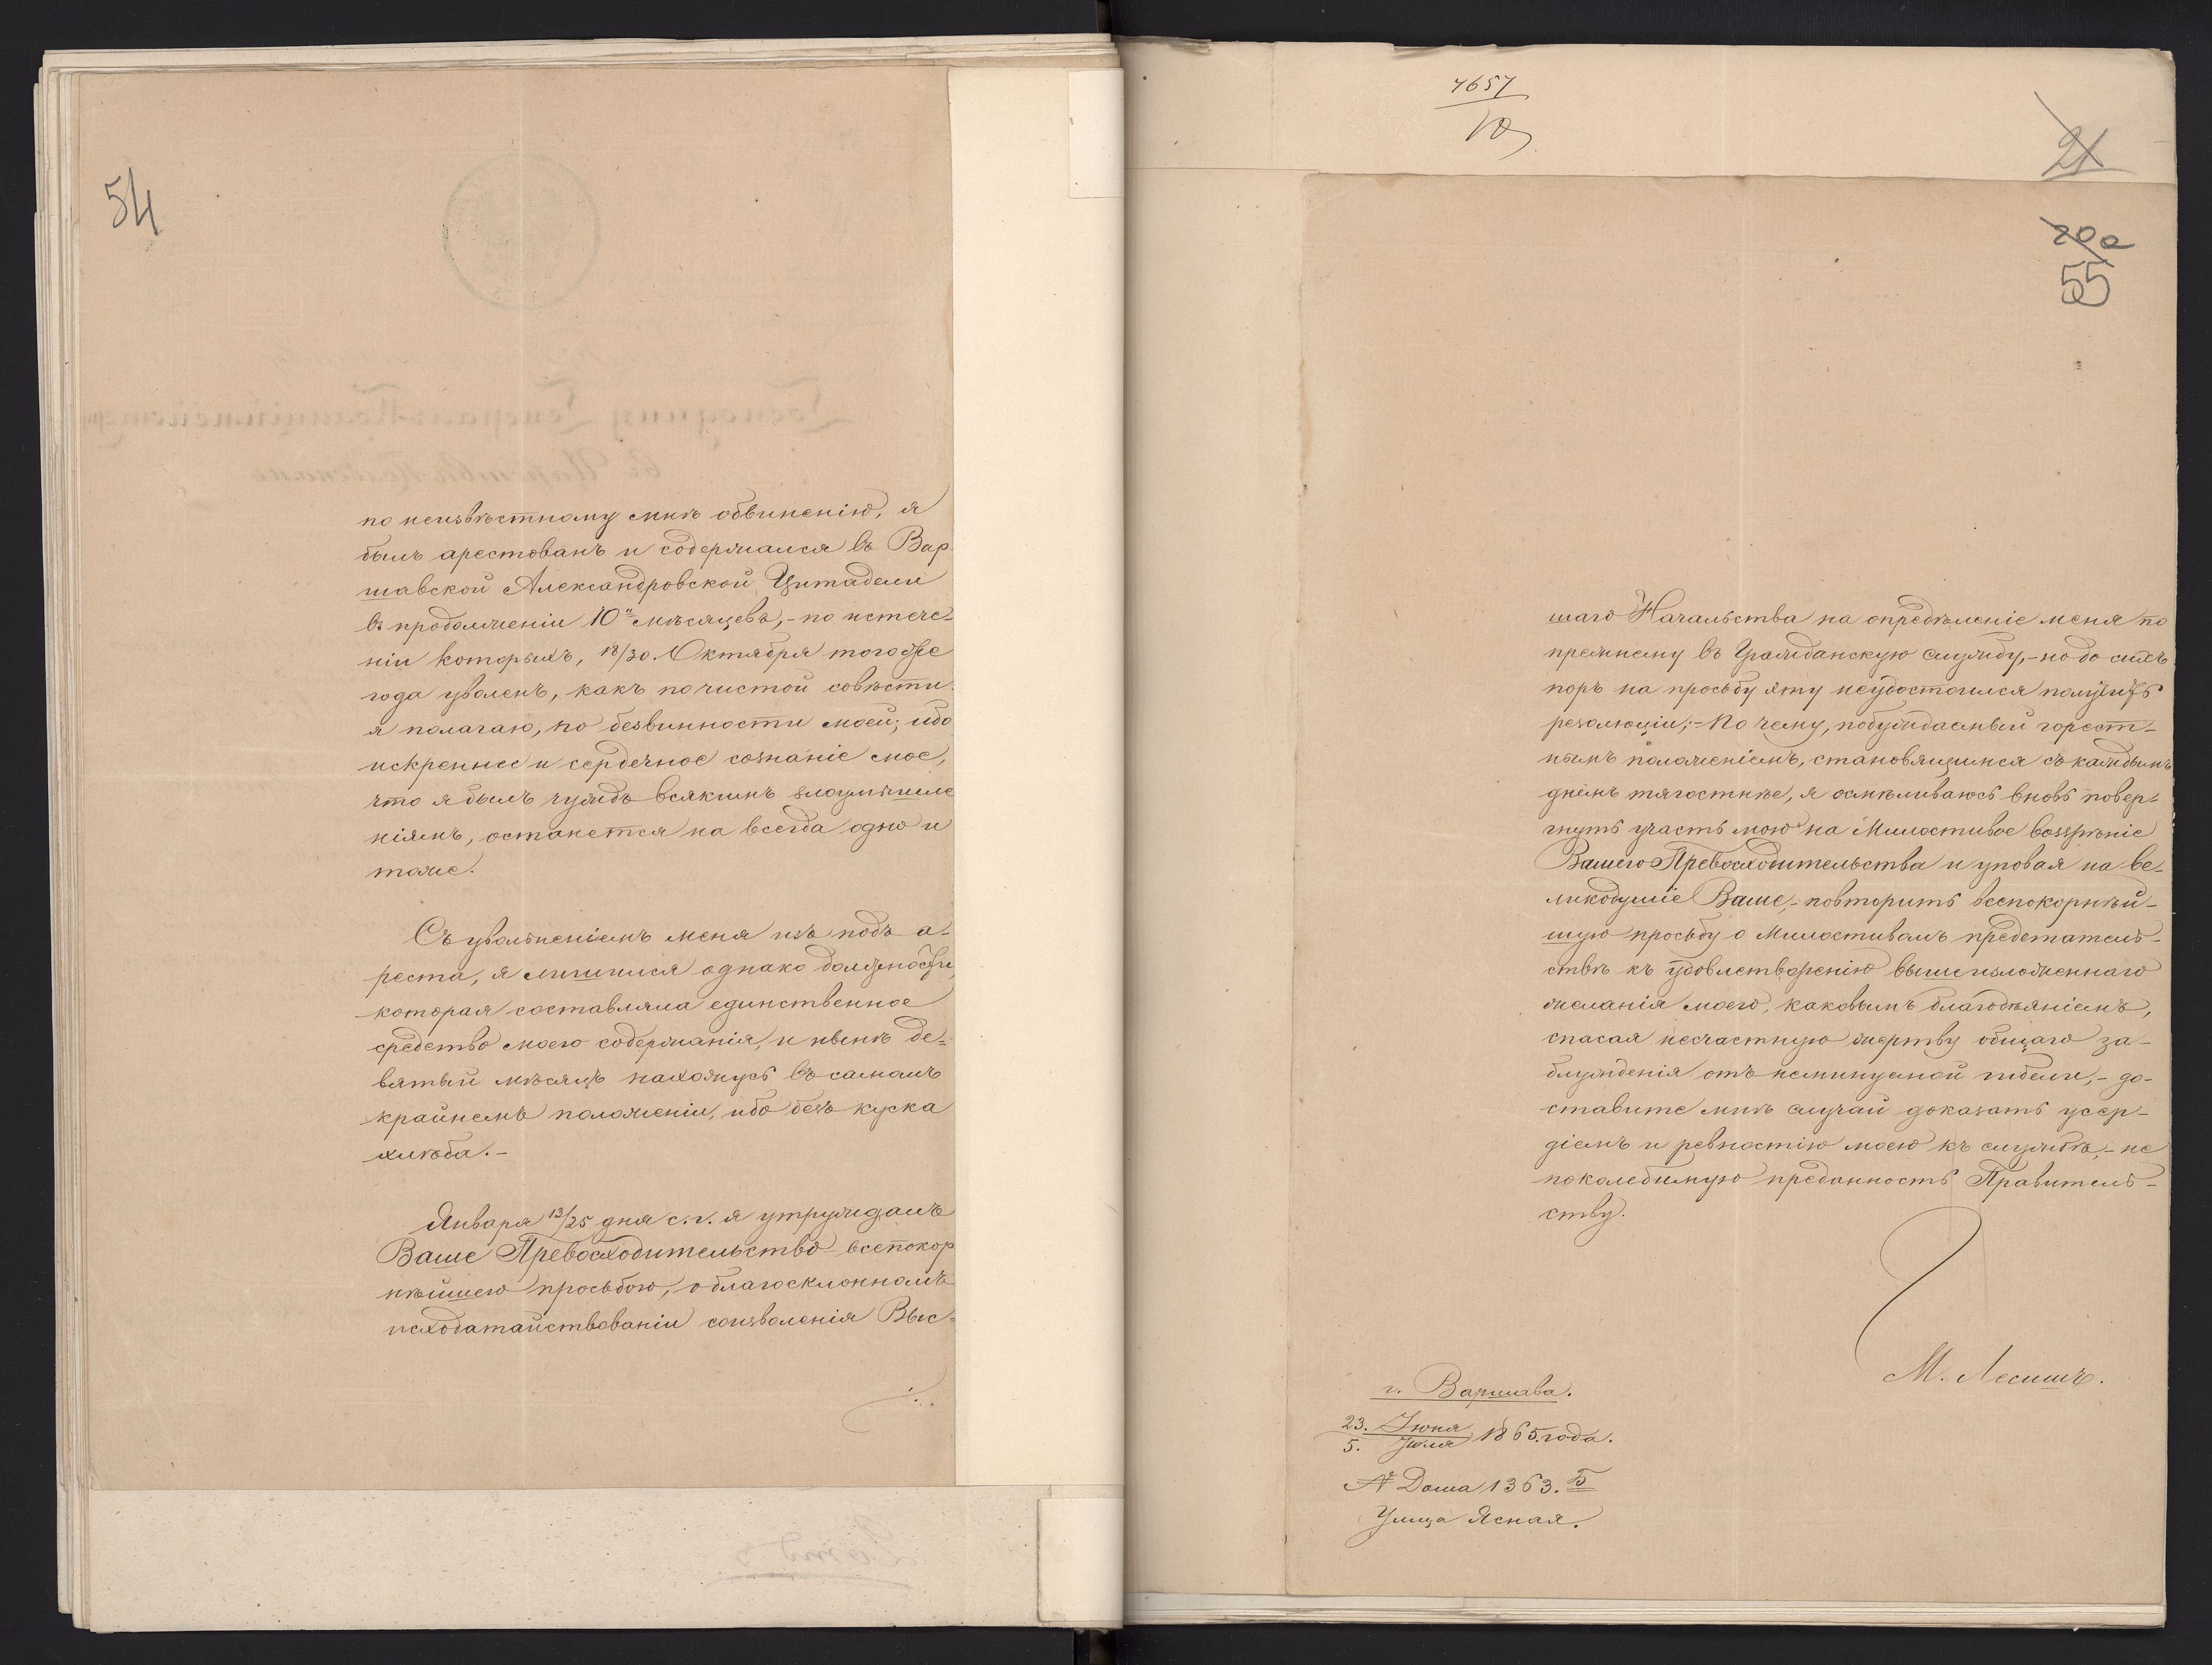 54
по неизвѣстному мнѣ обвиненію, я
былъ арестованъ и содержался въ Вар-
шавской Александровской Цитадели
въ продолженіи 10и мѣсяцевъ, - по истече-
ніи которыхъ, 18/30. Октября того же
года уволенъ, какъ по чистой совѣсти
я полагаю, по безвинности моей; ибо
искреннее и сердечное сознаніе мое,
что я былъ чуждъ всякимъ злоумышле
ніямъ, останется на всегда одно и
тоже.
Съ увольненіемъ меня изъ подъ а-
реста, я лишился однако должности,
которая составляла единственное
средство моего содержанія, и нынѣ де-
вятый мѣсяцъ нахожусь въ самомъ
крайнемъ положеніи, ибо безъ куска
хлѣба. -
Января 13/25 дня с. г. я утруждалъ
Ваше Превосходительство всепокор
нѣйшею просьбою, о благосклонномъ
исходатайствованіи соизволенія Выс-
./.
7657
21
20a
55
шаго Начальства на опредѣленіе меня по
прежнему въ Гражданскую службу, - но до сихъ
поръ на просьбу эту неудостоился получить
резолюціи; - По чему, побуждаемый горест-
нымъ положеніемъ, становящимся съ каждымъ
днемъ тягостнѣе, я осмѣливаюсь вновь повер-
гнуть участь мою на Милостивое воззрѣніе
Вашего Превосходительства и уповая на ве-
ликодушіе Ваше, - повторить всепокорнѣй-
шую просьбу о Милостивомъ предстатель-
ствѣ къ удовлетворенію вышеизложеннаго
желанія моего, каковымъ благодѣяніемъ,
спасая несчастную жертву общаго за-
блужденія отъ неминуемой гибели, - до-
ставите мнѣ случай доказать усер-
діемъ и ревностію моею къ службѣ, - не
поколебимую преданность Правитель-
ству.
М. Лесишъ.
г. Варшава.
23. Іюня
5. Іюля 1865 года.
№ Дома 1363. Б
Улица Ясная.